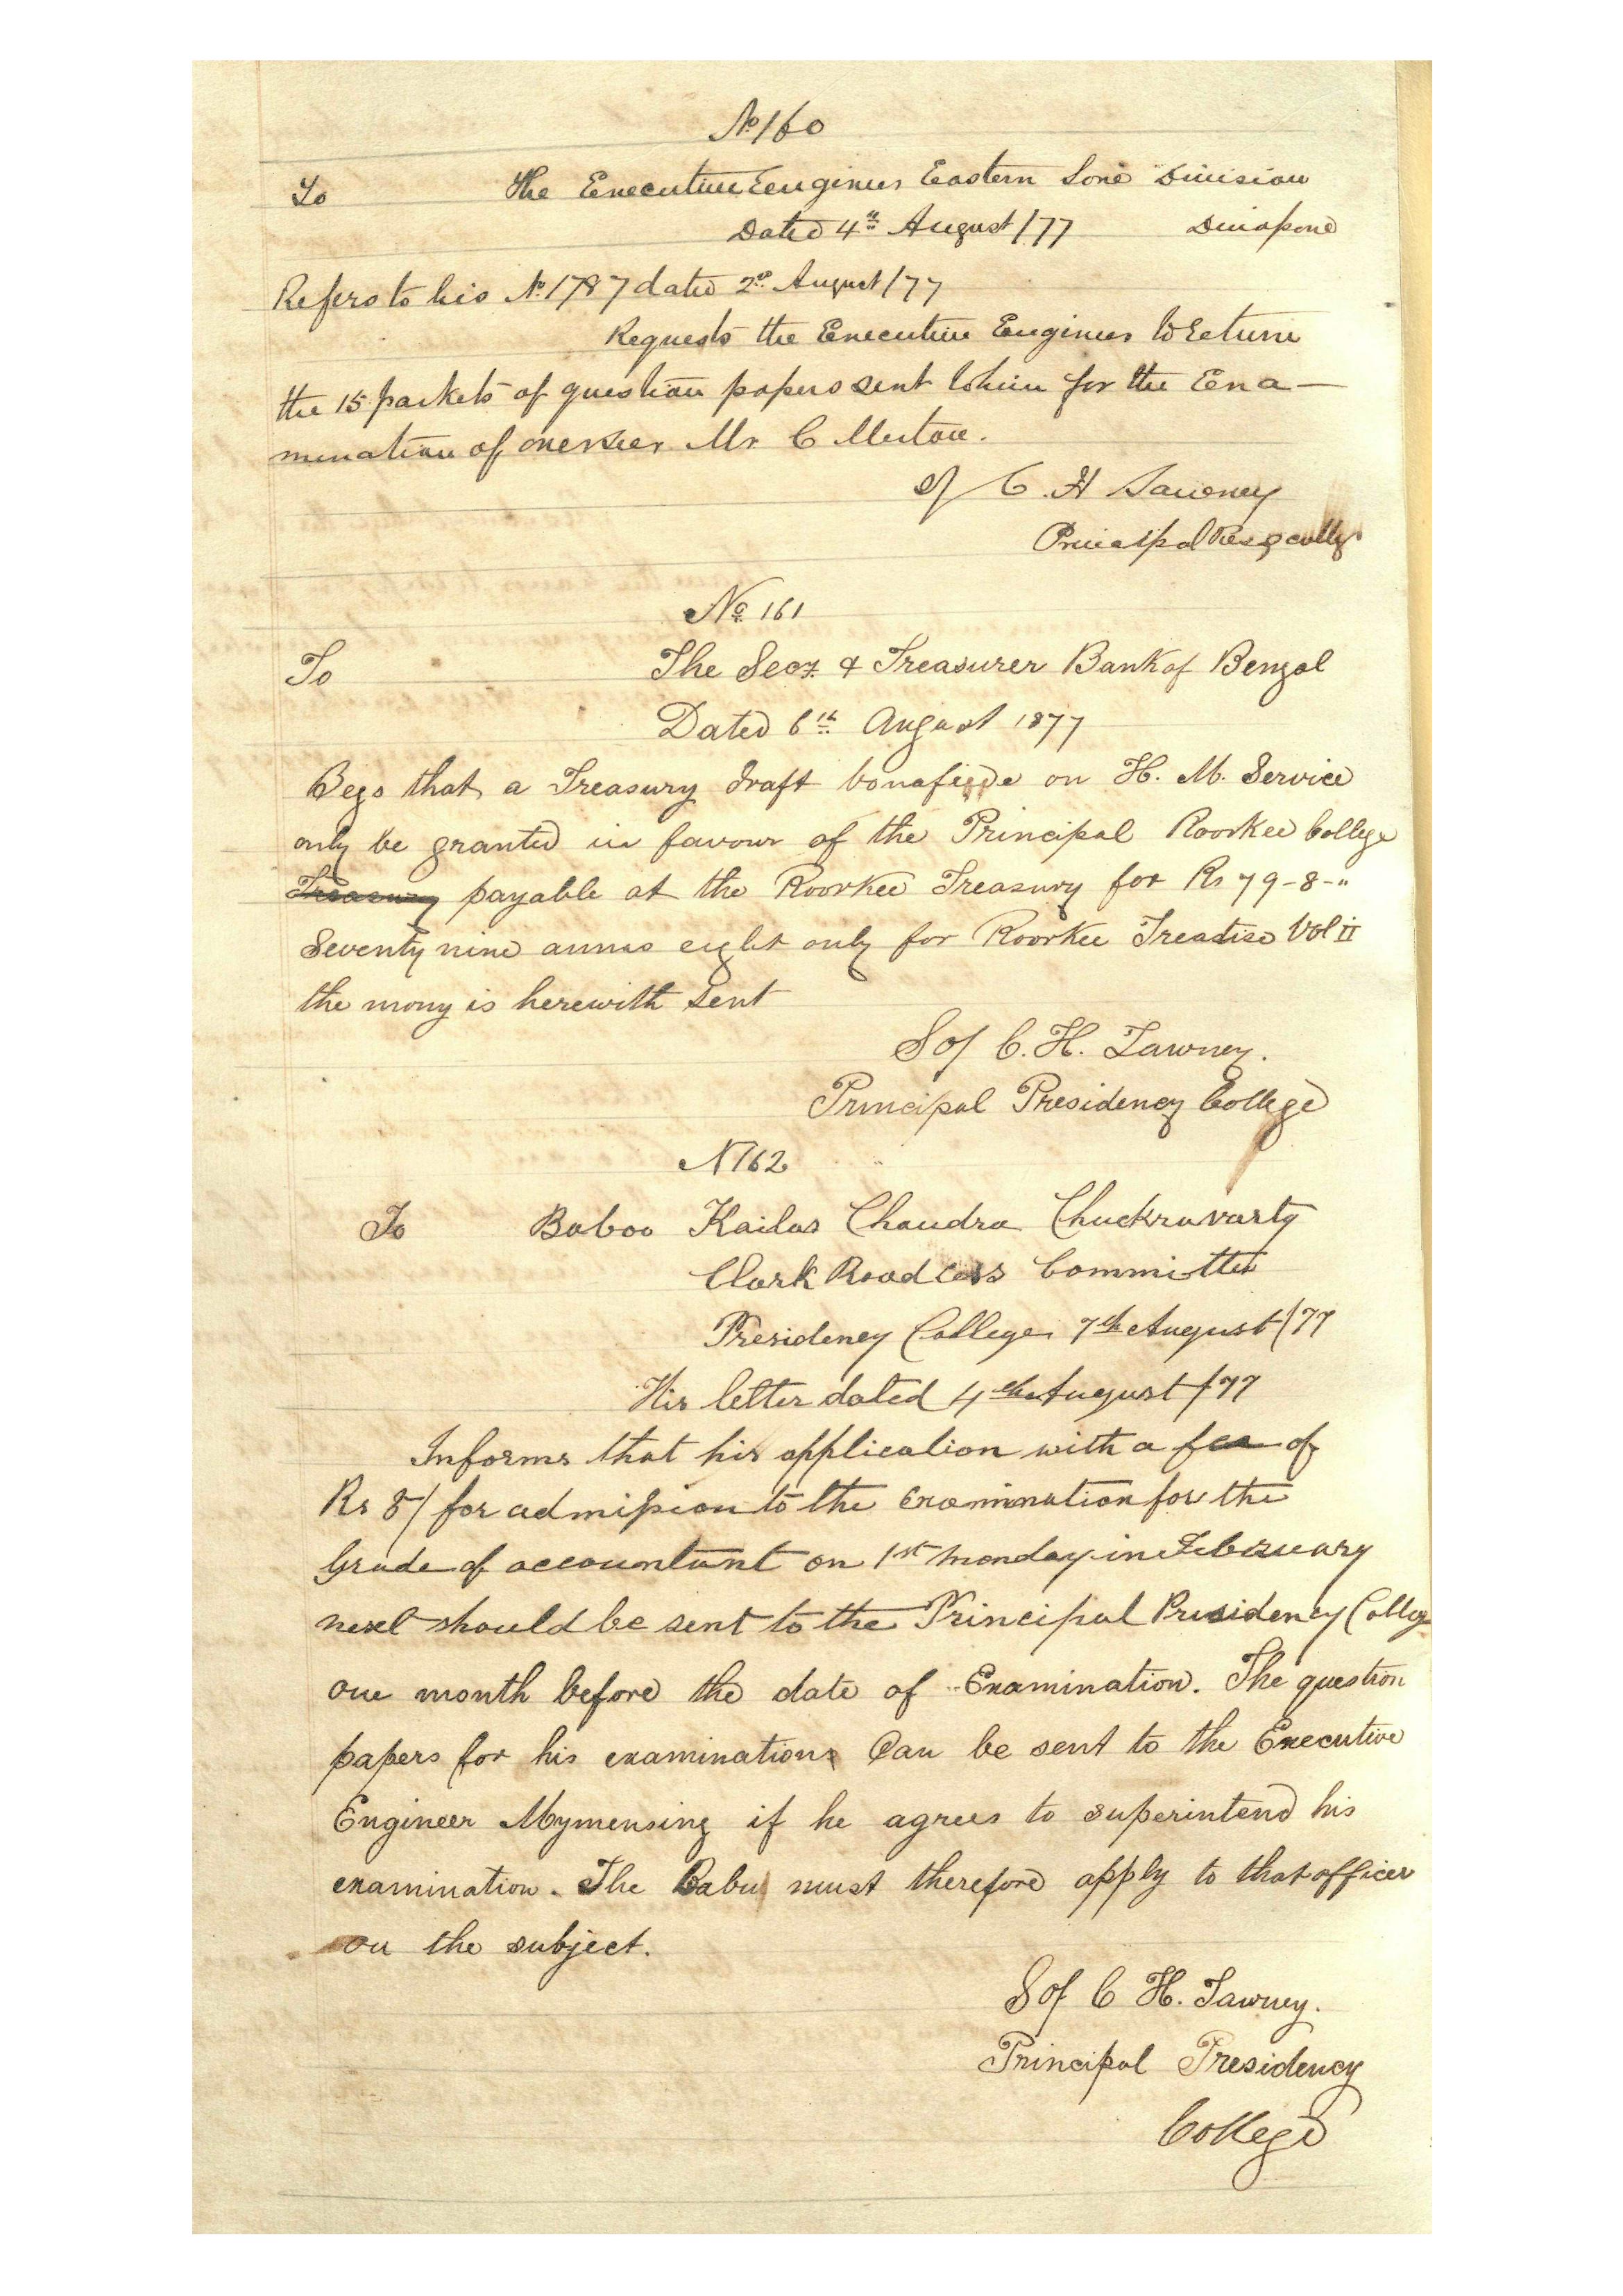 No 160
To The Executive Engineer Eastern Sone Division
Dated 4th August /77 Dinapore
Refers to his No. 1787 dated 2d August /77
Requests the Executive Engineer to return
the 15 packets of question papers sent to him for the Exa—
mination of overseer Mr. C
Sd/ C. H Tawney
Principal Presy College
No. 161
To The Secy. & Treasurer Bank of Bengal
Dated 6th August 1877
Begs that a Treasury draft bonafide on H. M. Service
only be granted in favour of the Principal Roorkee College
Treasury payable at the Roorkee Treasury for Rs 79-8-"
Seventy nine annas eight only for Roorkee Treatise Vol II
the mony is herewith sent
Sd/ C. H. Tawney.
Principal Presidency College
N 162
To Baboo Kailas Chandra Chuckravarty
Clark Road Cess Committee
Presidency College 7th August /77
His letter dated 4th August /77
Informs that his application with a fee of
Rs 8/ for admission to the examination for the
Grade of accountant on 1st monday in February
next should be sent to the Principal Presidency Colleg
one month before the date of Examination. The question
papers for his examination Can be sent to the Executive
Engineer Mymensing if he agrees to superintend his
examination. The Babu must therefore apply to that officer
on the subject.
Sd/ C H. Tawney.
Principal Presidency
College